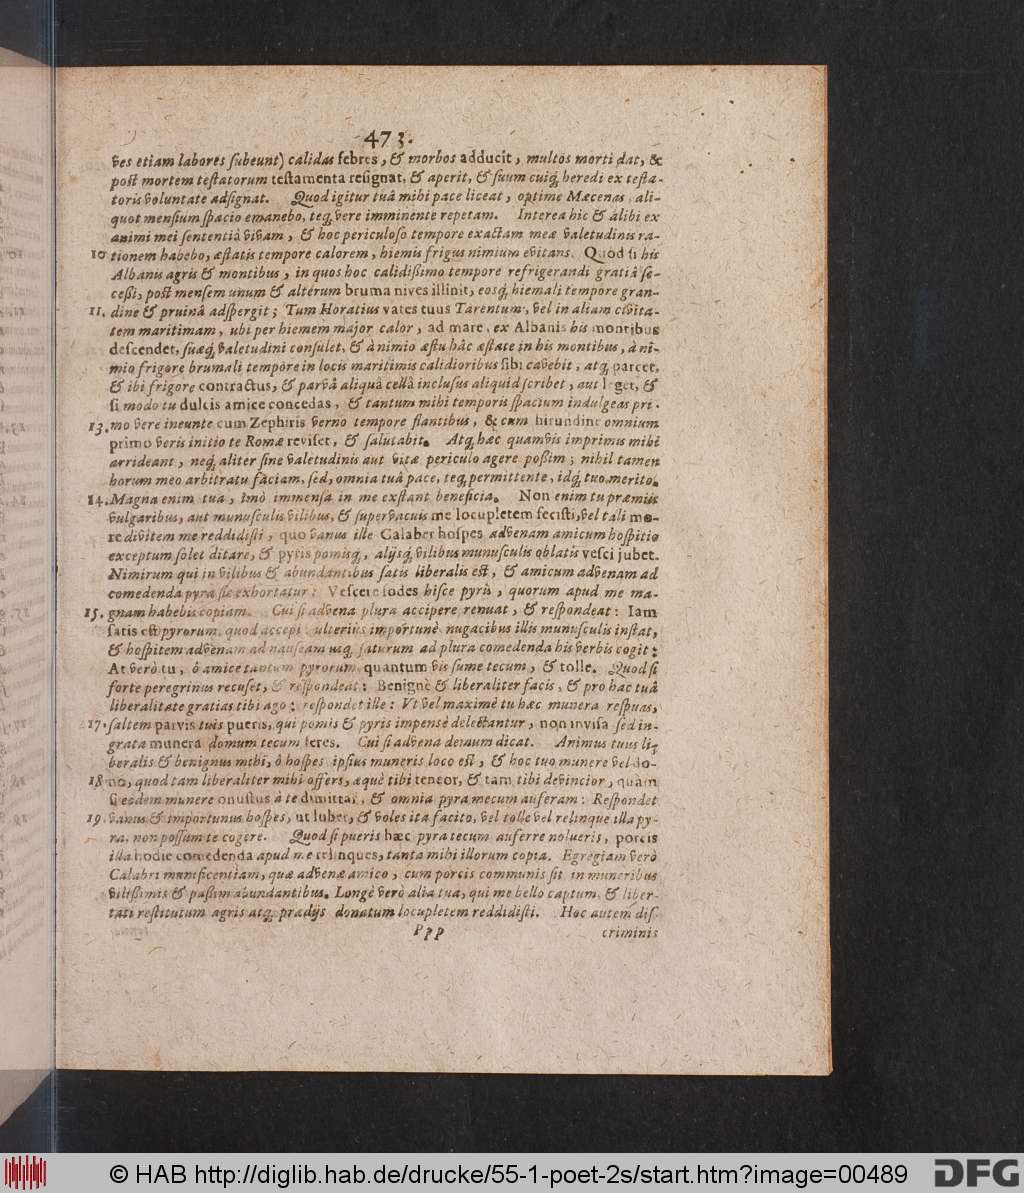 473.
ves etiam labores ſubeunt) calidas febres, & morbos adducit, multos morti dat, &
poſt mortem teſtatorum teſtamenta reſignat, & aperit, & ſuum cuiq́, heredi ex teſta-
toris voluntate adſignat. Quod igitur tuâ mihi pace liceat, optime Mæcenas, ali-
quot menſium ſpacio emanebo, teq́, vere imminente repetam. Interea hic & alibi ex
animi mei ſententiâ vivam, & hoc periculoſo tempore exactam meæ valetudinis ra-
10 tionem habebo, æſtatis tempore calorem, hiemis frigus nimium evitans. Quod ſi his
Albanis agris & montibus, in quos hoc calidißimo tempore refrigerandi gratiâ ſe-
ceßi, poſt menſem unum & alterum bruma nives illinit, eosq́, hiemali tempore gran-
11. dine & pruinâ adſpergit; Tum Horatius vates tuus Tarentum, vel in aliam civita-
tem maritimam, ubi per hiemem major calor, ad mare, ex Albanis his montibus
deſcendet, ſuæq́, valetudini conſulet, & à nimio æſtu hâc æſtate in his montibus, à ni-
mio frigore brumali tempore in locis maritimis calidioribus ſibi cavebit, atq́, parcet,
& ibi frigore contractus, & parvâ aliquâ cellâ incluſus aliquid ſcribet, aut leget, &
ſi modo tu dulcis amice concedas, & tantum mihi temporis ſpacium indulgeas pri-
13. mo vere ineunte cum Zephiris verno tempore flantibus, & cum hirundine omnium
primo veris initio te Romæ reviſet, & ſalutabit. Atq́, hæc quamvis imprimis mihi
arrideant, neq́, aliter ſine valetudinis aut vitæ periculo agere poßim; nihil tamen
horum meo arbitratu faciam, ſed, omnia tuâ pace, teq́, permittente, idq́, tuo merito.
14. Magna enim tua, imò immenſa in me exſtant beneficia. Non enim tu præmiis
vulgaribus, aut munuſculis vilibus, & ſupervacuis me locupletem feciſti, vel tali mo-
re divitem me reddidiſti, quo vanus ille Calaber hoſpes advenam amicum hoſpitio
exceptum ſolet ditare, & pyris pomisq́, alijsq́, vilibus munuſculis oblatis veſci jubet.
Nimirum qui in vilibus & abundantibus ſatis liberalis eſt, & amicum advenam ad
comedenda pyra ſic exhortatur: Veſcere ſodes hiſce pyris, quorum apud me ma-
15. gnam habebis copiam. Cui ſi advena plura accipere renuat, & reſpondeat: Iam
ſatis eſt pyrorum, quod accepi: ulterius importunè nugacibus illis munuſculis inſtat,
& hoſpitem advenam ad nauſeam uſq́, ſaturum ad plura comedenda his verbis cogit:
At verò tu, ô amice tantum pyrorum, quantum vis ſume tecum, & tolle. Quod ſi
forte peregrinus recuſet, & reſpondeat: Benignè & liberaliter facis, & pro hac tuâ
liberalitate gratias tibi ago: reſpondet ille: Vt vel maximè tu hæc munera reſpuas,
17. ſaltem parvis tuis pueris, qui pomis & pyris impensè delectantur, non inviſa ſed in-
grata munera domum tecum feres. Cui ſi advena demum dicat. Animus tuus li-
beralis & benignus mihi, ô hoſpes ipſius muneris loco eſt, & hoc tuo munere vel do-
18 no, quod tam liberaliter mihi offers, æquè tibi teneor, & tam tibi devincior, quàm
ſi eodem munere onuſtus à te dimittar, & omnia pyra mecum auferam: Reſpondet
19. vanus & importunus hoſpes, ut lubet, & voles ita facito, vel tolle vel relinque illa py-
ra, non poſſum te cogere. Quod ſi pueris hæc pyra tecum auferre nolueris, porcis
illa hodie comedenda apud me relinques, tanta mihi illorum copia. Egregiam verò
Calabri munificentiam, quæ advenæ amico, cum porcis communis ſit in muneribus
vilißimis & paßim abundantibus. Longè verò alia tua, qui me bello captum, & liber-
tati reſtitutum agris atq́, prædijs donatum locupletem reddidiſti. Hoc autem diſ-
Ppp criminis
© HAB http://diglib.hab.de/drucke/55-1-poet-2s/start.htm?image=00489 DFG